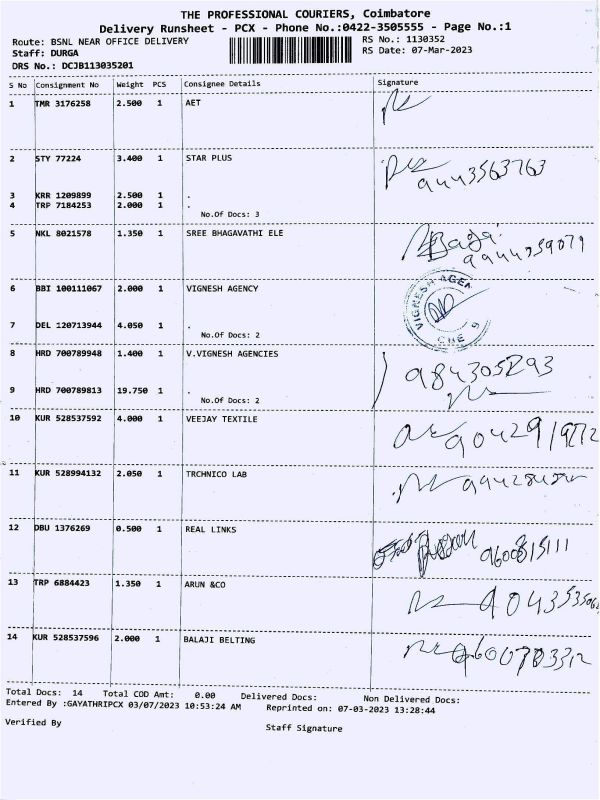 THE PROFESSIONAL COURIERS, Coimbatore
Delivery Runsheet - PCX - Phone No.:0422-3505555 - Page No.:1
Route: BSNL NEAR OFFICE DELIVERY
RS No.: 1130352
Staff: DURGA
RS Date: 07-Mar-2023
DRS No.: DCJB113035201
S No Consignment No Weight PCS Consignee Details Signature
1 TMR 3176258 2.500 1 AET
2 STY 77224 3.400 1 STAR PLUS
9443563763
3 KRR 1209899 2.500 1 .
4 TRP 7184253 2.000 1 .
No.Of Docs: 3
5 NKL 8021578 1.350 1 SREE BHAGAVATHI ELE
6 BBI 100111067 2.000 1 VIGNESH AGENCY
VIGNESH AGEN
CBE 9
7 DEL 120713944 4.050 1 .
No.Of Docs: 2
8 HRD 700789948 1.400 1 V.VIGNESH AGENCIES
984305293
9 HRD 700789813 19.750 1 .
No.Of Docs: 2
10 KUR 528537592 4.000 1 VEEJAY TEXTILE
11 KUR 528994132 2.050 1 TRCHNICO LAB
12 DBU 1376269 0.500 1 REAL LINKS
13 TRP 6884423 1.350 1 ARUN &CO
14 KUR 528537596 2.000 1 BALAJI BELTING
Total Docs: 14 Total COD Amt: 0.00 Delivered Docs: Non Delivered Docs:
Entered By :GAYATHRIPCX 03/07/2023 10:53:24 AM Reprinted on: 07-03-2023 13:28:44
Verified By
Staff Signature